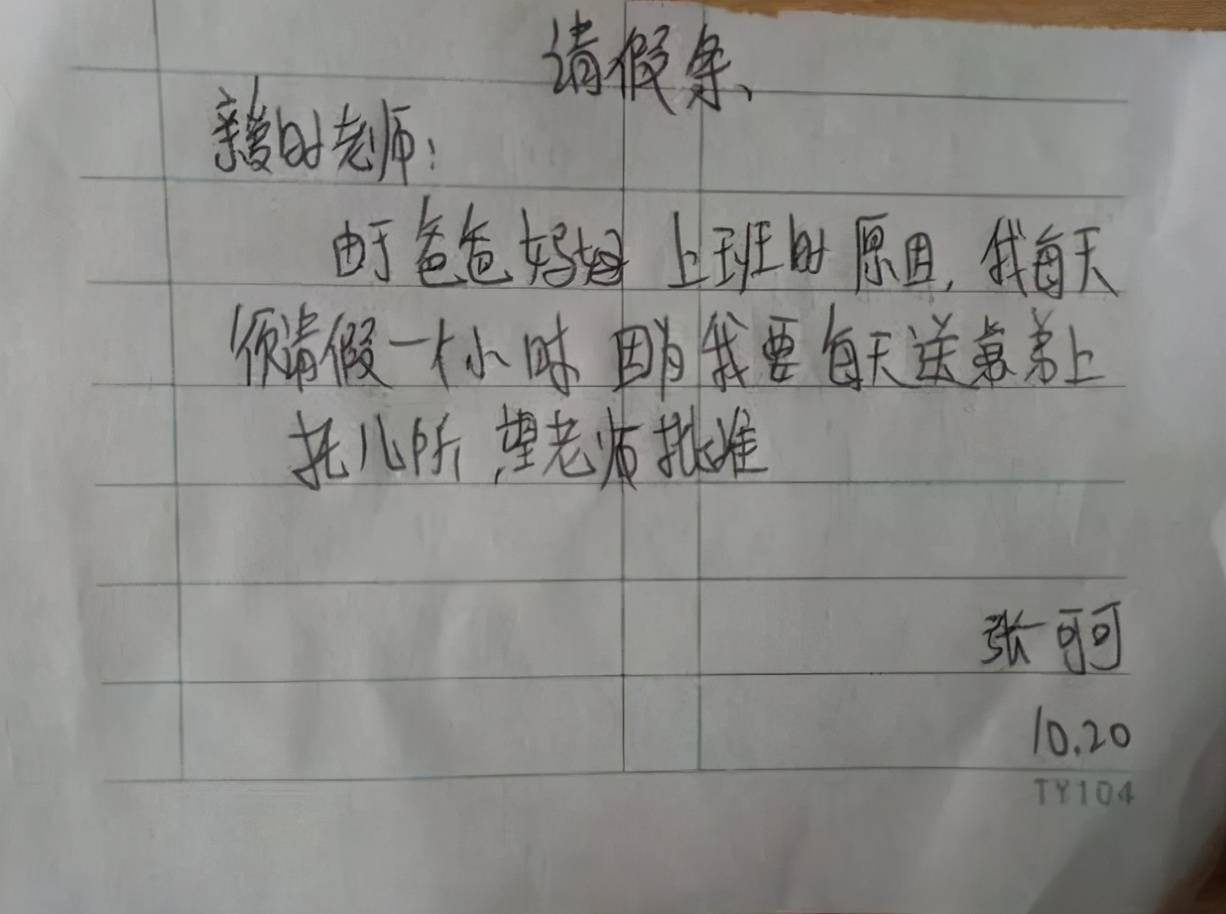 请假条、
亲爱的老师：
由于爸爸妈妈 上班的 原因，我每天
须请假一个小时 因为我要 每天送弟弟上
托儿所,望老师批准
张可可
10.20
TY104